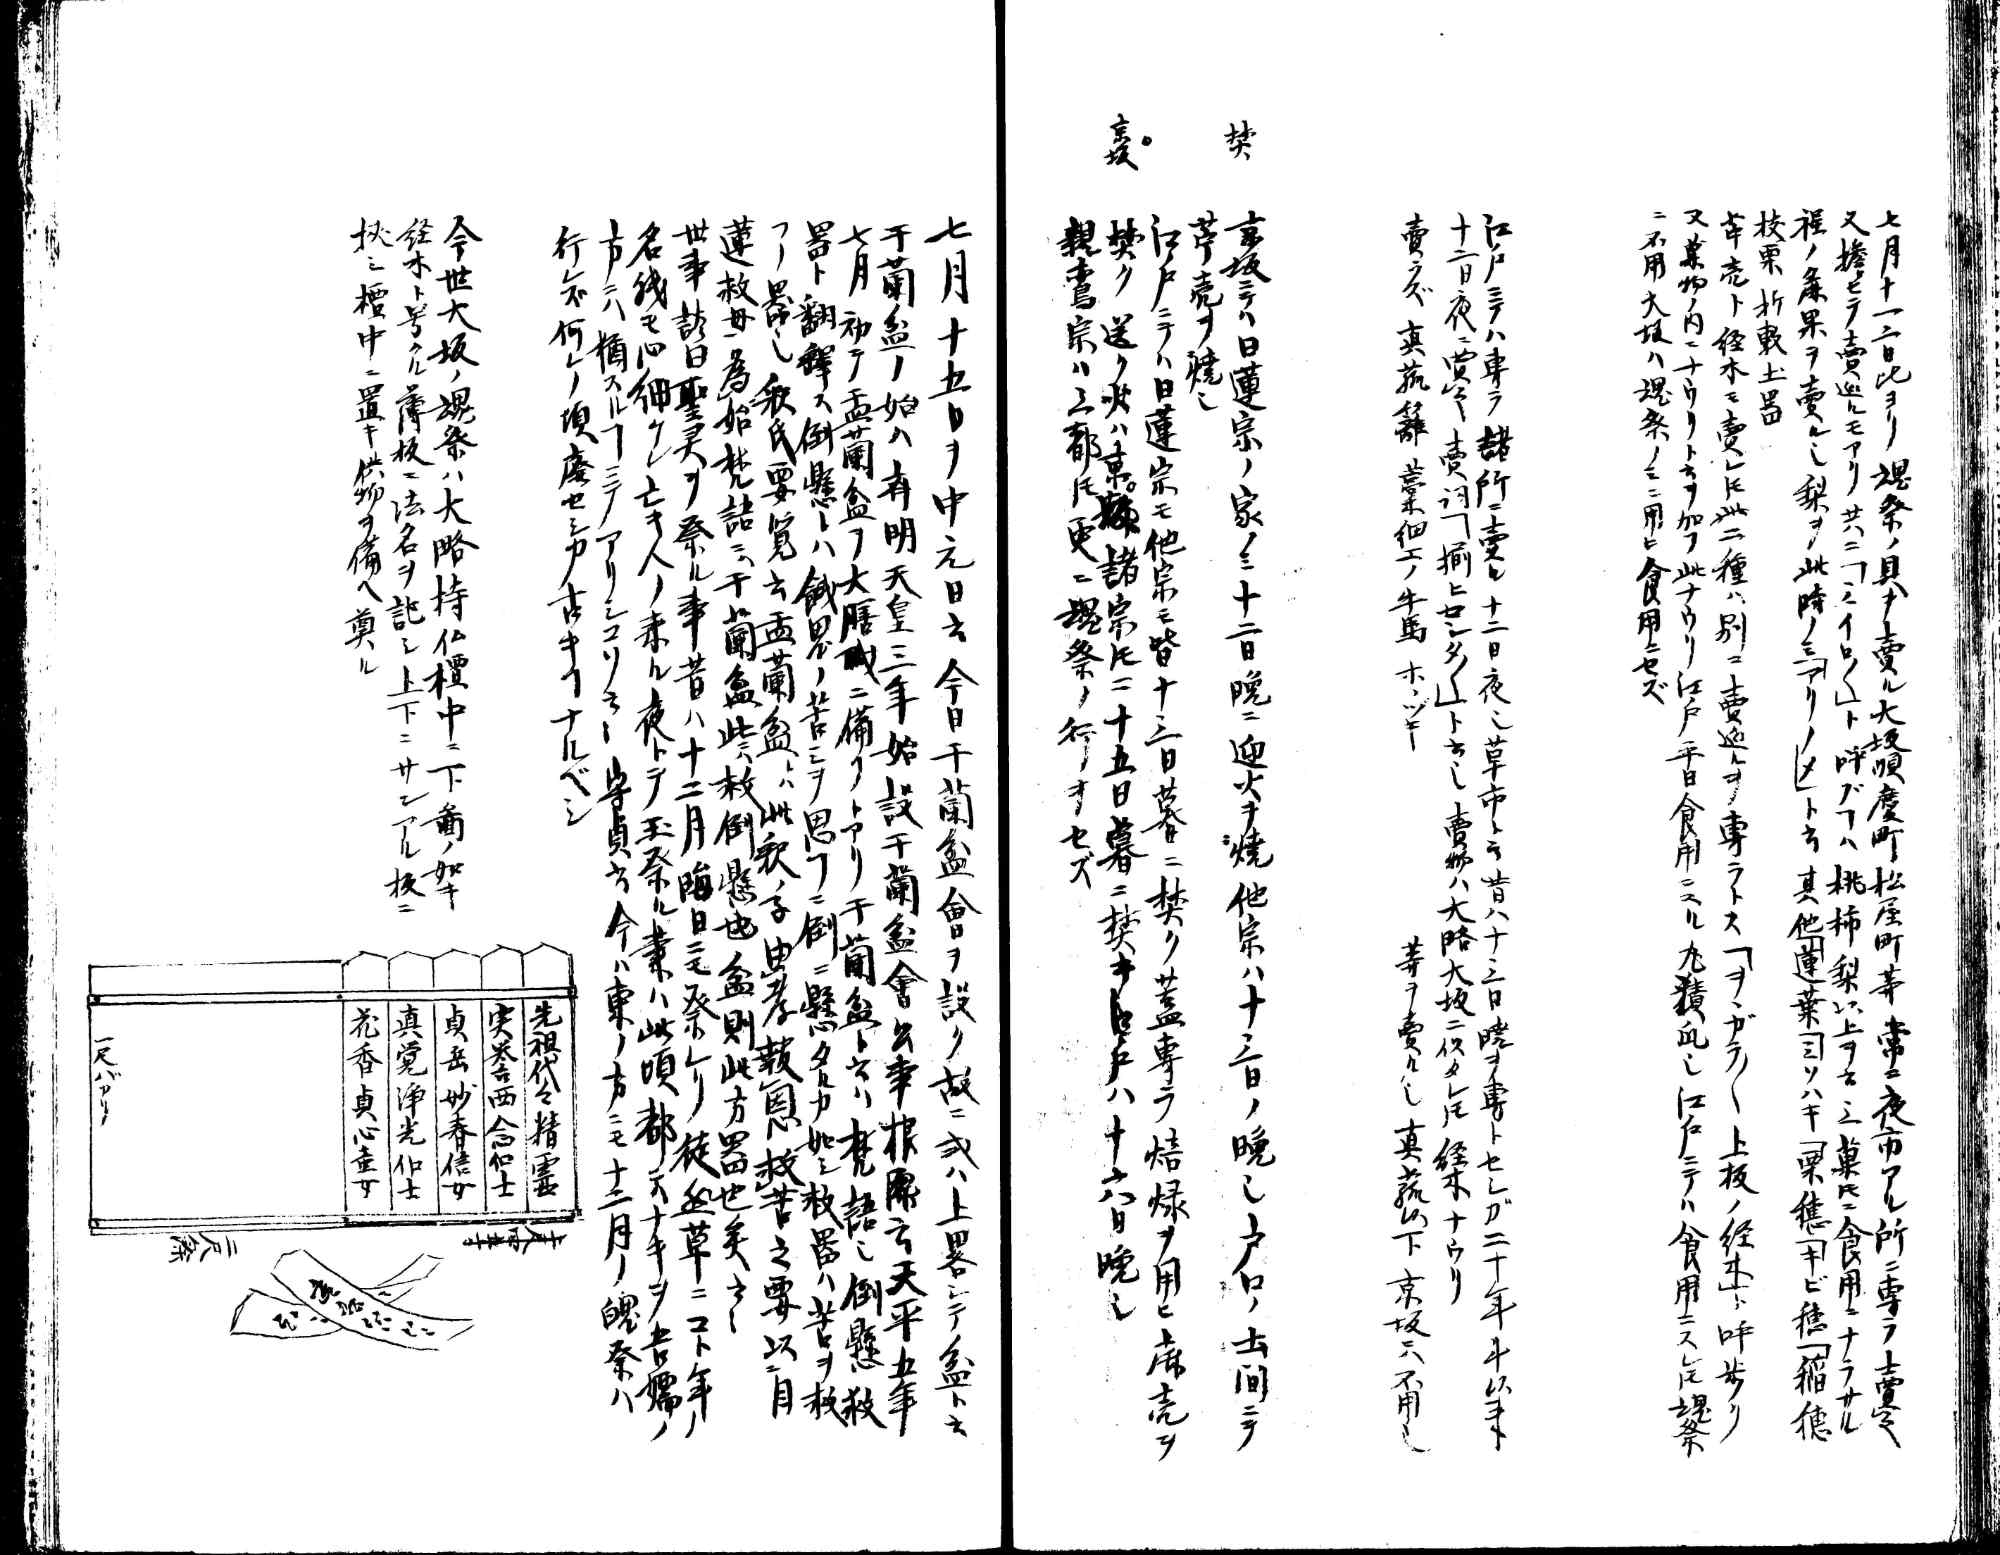 七月十一二日比ヨリ魂祭ノ具ヲ賣ル大坂順慶町松屋町等常ニ夜市アル所ニ専ラ賣之
又擔セテ賣巡ルモアリ共ニ「イロ〳〵」ト呼ブハ桃柿梨以上ヲ云三菓氏ニ食用ニナラザル
程ノ麁果ヲ賣ル也梨ヲ此時ノミ「アリノメ」ト云其他「蓮葉「ミソハキ「栗穂「キビ穂「稲穂
枝栗折敷土器
苧売ト経木モ賣レ氏此二種ハ別ニ賣巡ルヲ専ラトス「ヲンガラ〳〵上板ノ経木」ト呼歩リ
又菓物ノ内ニナウリト云ヲ加フ此ナウリ江戸平日食用ニスル丸漬瓜也江戸ニテハ食用ニスレ氏魂祭
ニ不用大坂ハ魂祭ノミニ用ヒ食用ニセズ
江戸ニテハ専ラ諸所ニ賣ル十二日夜也草市ト云昔ハ十三日暁ヲ専トセシガ二十年斗以来
十二日夜ニ買之賣詞「揃ヒセンタ〳〵」ト云也賣物ハ大略大坂ニ似タレ氏経木ナウリ
賣ラズ真菰籬藁細工ノ牛馬ホウヅキ
等ヲ賣ル也真菰以下京坂ニハ不用也
焚
京坂ニテハ日蓮宗ノ家ノミ十二日晩ニ迎火ヲ焼他宗ハ十三日ノ晩也戸口ノ土間ニテ
苧売ヲ焼也
江戸ニテハ日蓮宗モ他宗モ皆十三日暮ニ焚ク蓋専ラ焙烙ヲ用ヒ麻売ヲ
京坂
焚ク送ク火ハ諸宗氏ニ十五日暮ニ焚キ江戸ハ十六日晩也
親鸞宗ハ三都氏更ニ魂祭ノ行ヲセズ
七月十五日ヲ中元日云今日于蘭盆會ヲ設ク故ニ或ハ上畧シテ盆ト云
于蘭盆ノ始ハ斉明天皇三年始設于蘭盆會公事根源云天平五年
七月初テ盂蘭盆ヲ大膳職ニ備クトアリ于蘭盆ト云ハ梵語也倒懸救
器ト翻釋ス倒懸トハ餓鬼ノ苦ミヲ思フニ倒ニ懸タルカ如シ救器ハ苦ヲ救
フノ器也釈氏要覧云盂蘭盆トハ此釈ノ子由孝報恩救苦之要以目
蓮救母為始梵語ニハ于蘭盆此ニハ救倒懸也盆則此方器也矣云々
世事談曰聖灵ヲ祭ル事昔ハ十二月晦日ニモ祭レリ徒然草ニコト年ノ
名残モ心細ケレ亡キ人ノ来ル夜トテ玉祭ル業ハ此頃都ニハナキヲ吾嬬ノ
方ニハ猶スルフニテアリシコソ云々守貞云今ハ東ノ方ニモ十二月ノ魂祭ハ
行レズ何レノ頃廃セシカ古キフナルベシ
今世大坂ノ魂祭ハ大略持仏檀中ニ下啚ノ如キ
経木ト号クル薄板ニ法名ヲ記シ上下ニサンアル板ニ
挟ミ檀中ニ置キ供物ヲ備ヘ奠ル
先祖代々精霊
実誉西念信士
貞岳妙春信女
真覚浄光信士
花香貞心童女
一尺バアリ
二尺余